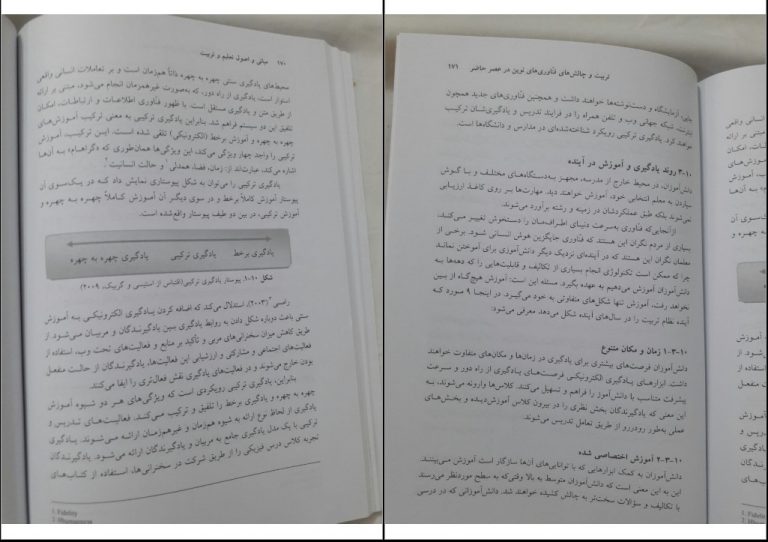 ۱۷۰ مبانی و اصول تعلیم و تربیت
محیط‌های یادگیری سنتی چهره به چهره ذاتاً هم‌زمان است و بر تعاملات انسانی واقعی
استوار است، یادگیری از راه دور، که به‌صورت غیرهمزمان انجام می‌شود، مبتنی بر ارائه
از طریق متن و یادگیری مستقل است. با ظهور فناوری اطلاعات و ارتباطات، امکان
تلفیق این دو سیستم فراهم شد. بنابراین یادگیری ترکیبی به معنی ترکیب آموزش‌های
چهره به چهره و آموزش برخط (الکترونیکی) تلقی شده است. ایس ترکیب، آموزش
ترکیبی را واجد چهار ویژگی می‌کند، این ویژگی‌ها همان‌طوری که «گراهام» به آن‌ها
اشاره می‌کند، عبارت‌اند از: زمان، فضا، همدلی۱ و حالت انسانیت۲.
یادگیری ترکیبی را می‌توان به شکل پیوستاری نمایش داد کـه در یـک‌سوی آن
پیوستار آموزش کاملاً برخط و در سوی دیگـر آن آمـوزش کـاملاً چهـره بـه چهـره و
آموزش ترکیبی، در بین دو طیف پیوستار واقع‌شده است.
یادگیری برخط یادگیری ترکیبی یادگیری چهره به چهره
شکل ۱-۱۰. پیوستار یادگیری ترکیبی(اقتباس از استیسی و گربیک، ۲۰۰۹)
(۲۰۰۳)، استدلال می‌کند که اضافه کردن یـادگیری الکترونیکـی بـه آمـوزش
سنتی باعث دوباره شکل دادن به روابط یادگیری بین یادگیرنـدگان و مربیـان مـی‌شـود. از
طریق کاهش میزان سخنرانی‌های مربی و تأکید بر منابع و فعالیت‌های تحت وب، استفاده از
فعالیت‌های اجتماعی و مشارکتی و ارزشیابی این فعالیت‌ها، یادگیرنـدگان از حالـت منفعـل
بودن خارج می‌شوند و در فعالیت‌های یادگیری نقش فعال‌تری را ایفا می‌کنند.
بنابراین، یادگیری ترکیبی رویکردی است که ویژگی‌های هـر دو شـیوه آمـوزش
چهره به چهره و یادگیری برخط را تلفیق و ترکیب مـی‌کنـد. فعالیـت‌های تـدریس و
یادگیری از لحاظ نوع ارائه به شیوه هم‌زمان و غیرهم‌زمان ارائـه مـی‌شـوند. یـادگیری
ترکیبی با یک مدل یادگیری جامع به مربیان و یادگیرندگان ارائه می‌شود. یادگیرنـدگان
تجربه کلاس درس فیزیکی را از طریق شرکت در سخنرانی‌ها، استفاده از کتـاب‌هـای
1. Fidelity
تربیت و چالش‌های فنّاوری‌های نوین در عصر حاضر ۱۷۱
چاپی، آزمایشگاه و دست‌نوشته‌ها خواهند داشت و همچنین فنّاوری‌های جدید همچون
اینترنت، شبکه جهانی وب و تلفن همراه را در فرایند تدریس و یادگیری‌شـان ترکیـب
خواهند کرد. یادگیری ترکیبی رویکرد شناخته‌شده‌ای در مدارس و دانشگاه‌ها است.
۳-۱۰ روند یادگیری و آموزش در آینده
دانش‌آموزان، در محیط خارج از مدرسه، مجهـز بـه‌دستگاه‌های مختلـف و بـا گـوش
سپاردن به معلم انتخابی خود، آموزش خواهند دید. مهارت‌ها بر روی کاغذ ارزیابی
نمی‌شوند بلکه طبق عملکردشان در زمینه و رشته برآورد می‌شوند.
ازآنجایی‌که فنّاوری به‌سرعت دنیـای اطـراف‌مـان را دسـتخوش تغییـر مـی‌کنـد،
بسیاری از مردم نگران این هستند که فناوری جایگزین هوش انسانی شود. برخـی از
معلمان نگران این هستند که در آینده‌ای نزدیک دیگر دانش‌آموزی برای آموختن نمانـد
چرا که ممکن است تکنولوژی انجام بسیاری از تکالیف و قابلیت‌هایی را که دهه‌ها بـه
دانش‌آموزان آموزش می‌دهیم به عهده بگیرد. مسئله این است: آموزش هیچ‌گاه از بـین
نخواهد رفت. آموزش تنها شکل‌های متفاوتی به خود می‌گیرد. در اینجـا ۹ مورد کـه
آینده نظام تربیت را در سال‌های آینده شکل می‌دهد معرفی می‌شود:
۱-۳-۱۰ زمان و مکان متنوع
دانش‌آموزان فرصت‌های بیشتری برای یادگیری در زمان‌ها و مکان‌های متفاوت خواهند
داشت. ابزارهـای یـادگیری الکترونیکـی فرصـت‌هـای یـادگیری از راه دور و سـرعت
پیشرفت متناسب با دانش‌آموز را فراهم و تسهیل می‌کنند. کلاس‌ها وارونه می‌شوند، به
این معنی که یادگیرندگان بخش نظری را در بیرون کلاس آموزش‌دیـده و بخـش‌هـای
عملی به‌طور رودررو از طریق تعامل تدریس می‌شوند.
۲-۳-۱۰ آموزش اختصاصی شده
دانش‌آموزان به کمک ابزارهایی که با توانایی‌های آن‌ها سازگار است آموزش مـی‌بیننـد.
این به این معنی است که دانش‌آموزان متوسط به بالا وقتی‌که به سطح موردنظر می‌رسند
با تکالیف و سؤالات سخت‌تر به چالش کشیده خواهند شد. دانش‌آموزانی که در درسی